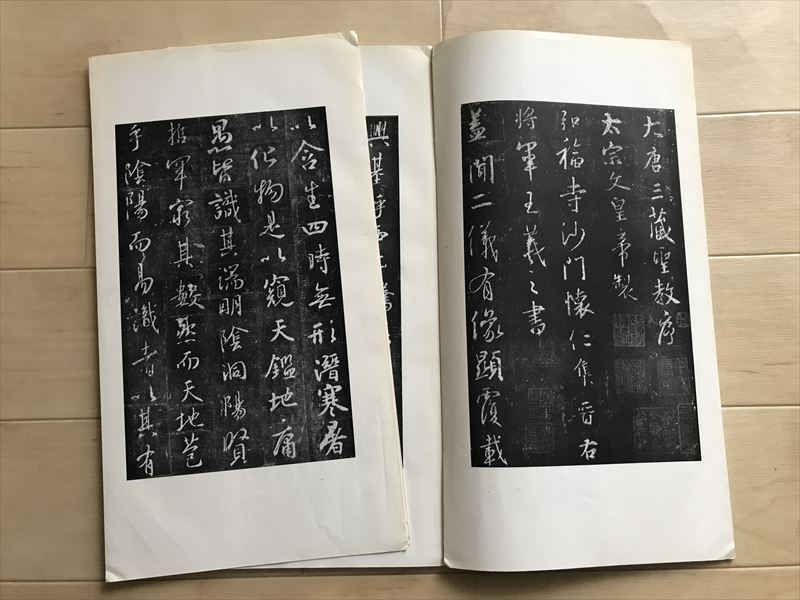 大唐三藏聖教序
太宗文皇帝製
弘福寺沙門懷仁集晉右
將軍王羲之書
蓋聞二儀有像顯覆載
以含生四時無形潛寒暑
以化物是以窺天鑑地庸
愚皆識其端明陰洞陽賢
哲罕窮其數然而天地苞
乎陰陽而易識者以其有
興基乎西